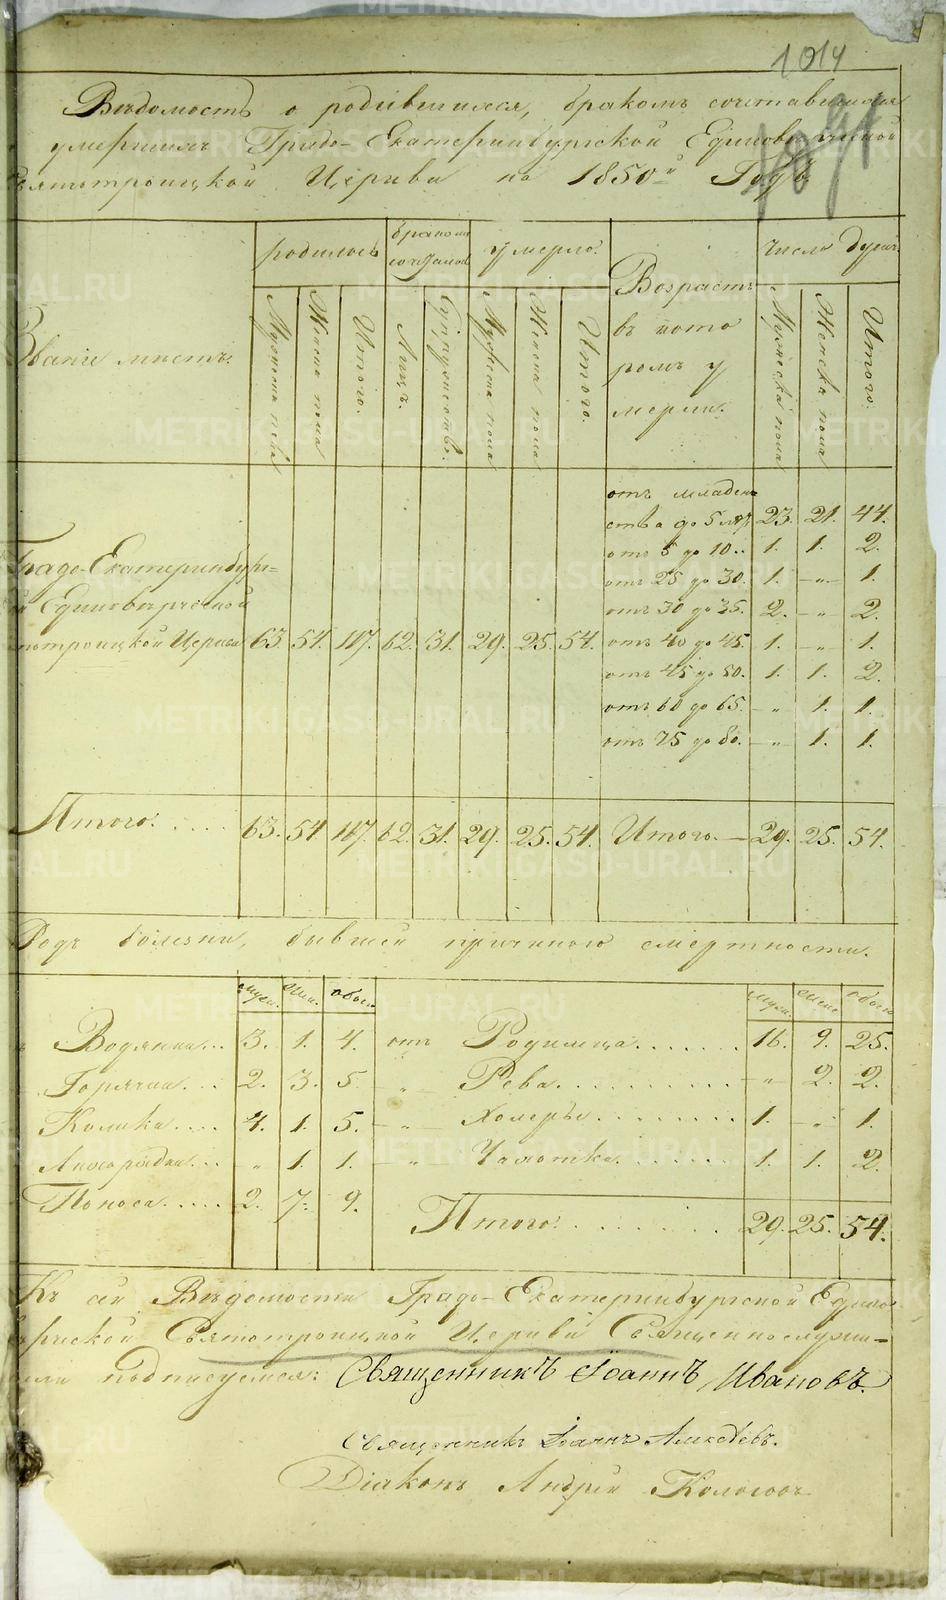 1014
Вѣдомость о родившихся, бракомъ сочетавшихся
умершихъ Градо-Екатеринбургской Единовѣрческой
Святотроицкой Церкви на 1850й Годъ
родилось
бракомъ сочеталось
умерло.
Возрастъ въ кото ромъ у мерли.
число душъ
Званіе мѣстъ.
Мужеска пола
Женска пола
Итого.
Лицъ.
Супружествъ.
Мужеска пола
Женска пола
Итого.
Мужеска пола
Женска пола
Итого.
отъ младен
ства до 5 лѣт 23. 21. 44.
отъ 5 до 10.. 1. 1. 2.
Градо-Екатеринбург=
отъ 25 до 30. 1. - „ - 1.
й Единоверческой
отъ 30 до 35. 2. - „ 2.
тотроицкой Церкви 63. 54. 117. 62. 31. 29. 25. 54. отъ 40 до 45. 1. - „ 1.
отъ 45 до 50. 1. 1. 2.
отъ 60 до 65. - „ 1. 1.
отъ 75 до 80. - „ 1. 1.
Итого. .... 63. 54 117. 62. 31. 29. 25. 54. Итого. — 29. 25. 54.
Родъ болезни, бывшей причиною смертности.
муж. жен. обоего
муж. жен. обоего
Водянки... 3. 1. 4. отъ Родимца....... 16. 9. 25.
Горячки... 2. 3. 5. - „ Рева.......... - „ 2. 2.
Колика.... 4. 1. 5. - „ Холеры........ 1. - „ 1.
Лихорадки... „ 1. 1. - „ Чахотки....... 1. 1. 2.
Поноса..... 2. 7. 9.
Итого. ....... 29. 25. 54.
Къ сей Вѣдомости Градо-Екатеринбургской Едино
вѣрческой Святотроицкой Церкви Священнослужи-
тели подписуемся: Священникъ Іоаннъ Ивановъ.
Священникъ Іоаннъ
Діаконъ Андрей Колосовъ
METRIKI.GASO-URAL.RU